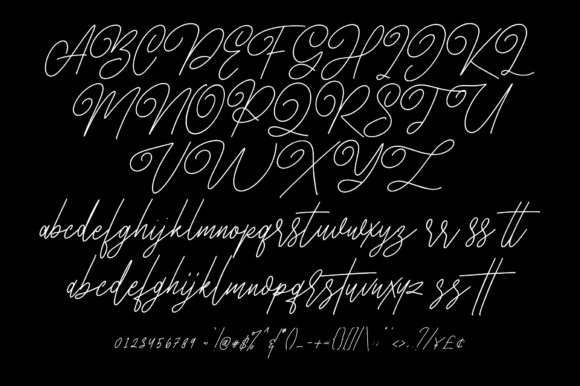 ABCDEFGHIJKL
MNOPQRSTU
VWXYZ
abcdefghijklmnopqrstuvwxyz rr ss tt
abcdefghijklmnopqrstuvwxyz ss tt
0123456789 ~ ! @ # $ % ^ & * ( ) _ - + = { } [ ] | \ : ; " ' < > , . ? / ¥ £ ¢